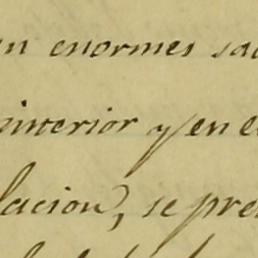 n enormes sac
interior y en e
lacion, se pre